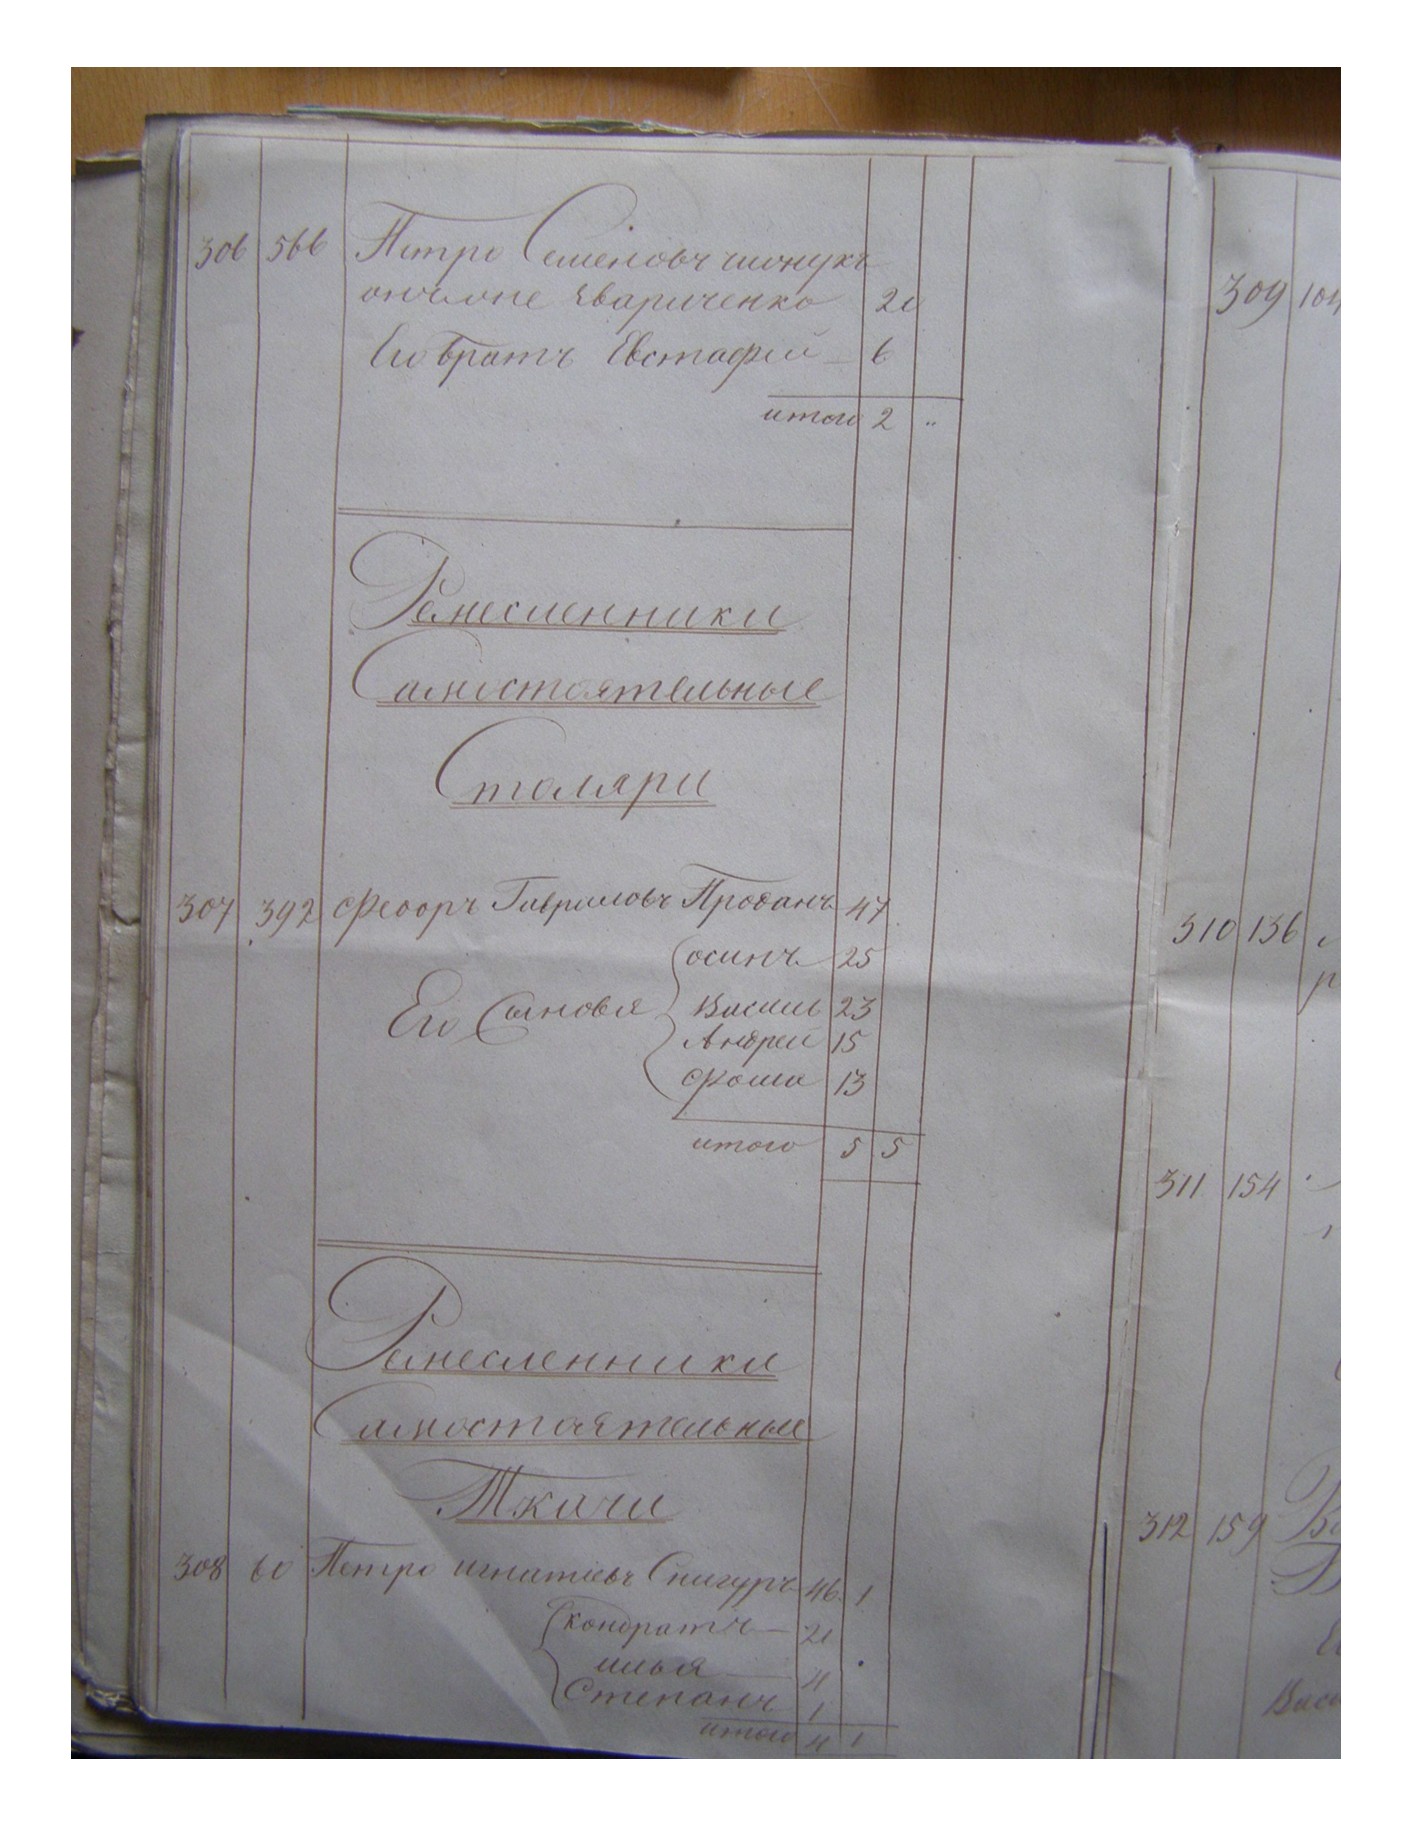 306 566 Петро Семеновъ
Явариченко 20
Его братъ Евстафей 6
итого 2 "
Ремесленники
Самостоятельные
Столяри
307 392 Феодоръ Гавриловъ Проданъ 47
осипъ 25
Его Сыновья Василь 23
Андрей 15
Фома 13
итого 5 5
Ремесленники
Самостоятельные
Ткачи
308 60 Петро игнатіевъ Снигуръ 46 1
кондратъ 21
илья 4
Степанъ 1
итого 4 1
309 104
310 136
311 154
312 159